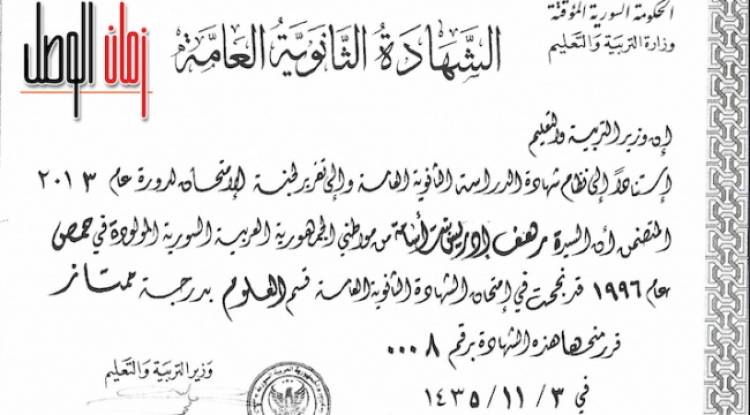 الحكومة السورية المؤقتة
وزارة التربية والتعليم
زمان الوصل
الشهادة الثانوية العامة
إن وزير التربية والتعليم
إستناداً إلى نظام شهادة الدراسة الثانوية العامة وإلى تقرير لجنة الإمتحان لدورة عام ٢٠١٣
المتضمن أن السيدة رهف إدريس من مواطني الجمهورية العربية السورية المولودة في حمص
عام ١٩٩٦ قد نجحت في إمتحان الشهادة الثانوية العامة قسم العلوم بدرجة ممتاز
قرر منحها هذه الشهادة برقم ٠٠٠٨
في ٣ / ١١ / ١٤٣٥
وزير التربية والتعليم